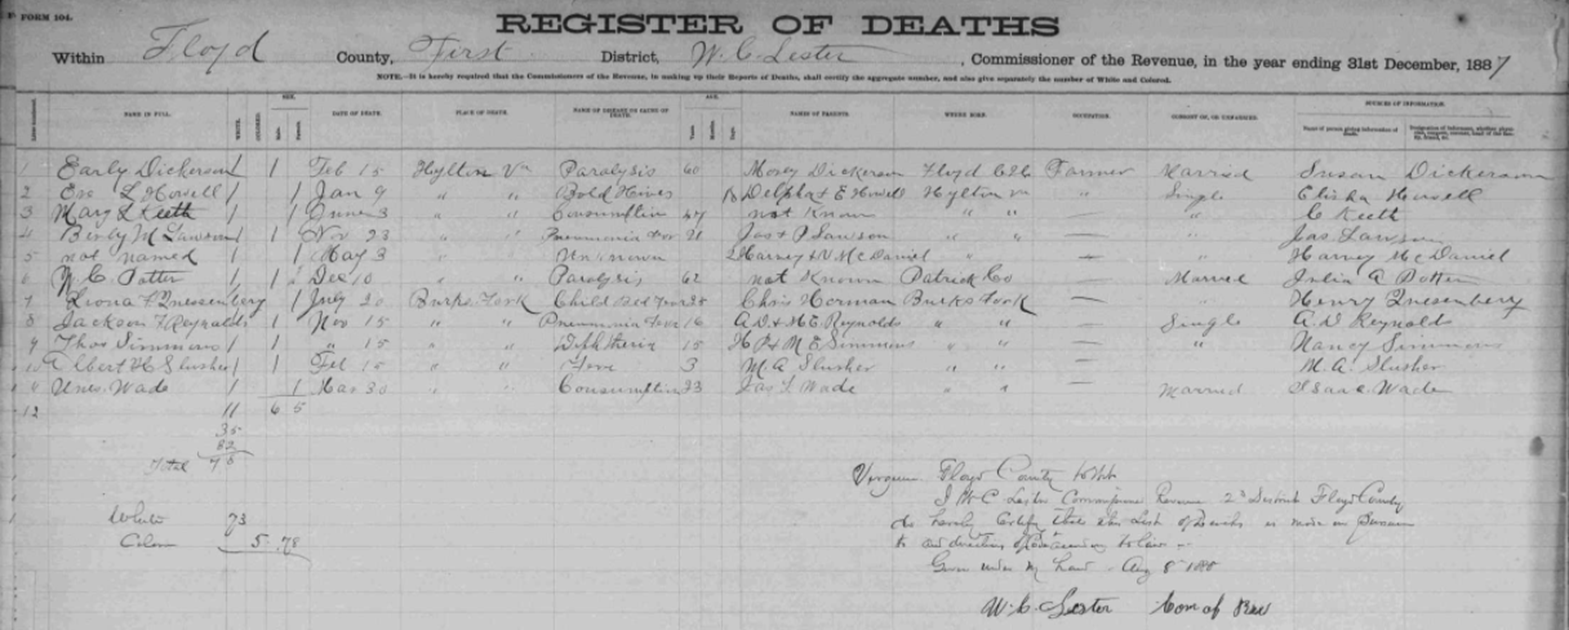 FORM 104.
REGISTER OF DEATHS
Within Floyd County, First District, W. C. Lester, Commissioner of the Revenue, in the year ending 31st December, 1887
NOTE.—It is hereby required that the Commissioners of the Revenue, in making up their Reports of Deaths, shall certify the aggregate number, and also give separately the number of White and Colored.
NAME IN FULL. WHITE. COLORED. SEX. Male. Female. DATE OF DEATH. PLACE OF DEATH. NAME OF DISEASE OR CAUSE OF DEATH. AGE. Years Months Days. NAMES OF PARENTS. WHERE BORN. OCCUPATION. CONSORT OF, OR UNMARRIED. SOURCES OF INFORMATION.
1 Early Dickerson 1 1 Feb 15 Hylton Va Paralysis 60 Dickerson Floyd Farmer Married Susan Dickerson
2 L Howell 1 1 Jan 9 " " Bold Hives & E Howell Hylton Va " Single Elisha Howell
3 Mary L Keeth 1 1 June 3 " " Consumption 47 not Known " " — " C Keeth
4 M Lawson 1 1 Nov 23 " " Pneumonia 21 Jas & P Lawson " " — " Jas. Lawson
5 not named 1 1 May 3 " " Unknown Harvey & McDaniel " — " Harvey McDaniel
6 W. C. Potter 1 1 Dec 10 " " Paralysis 62 not Known Patrick Co — Married Julia A Potter
7 Quesenbery 1 July 20 Burks Fork Child Bed Fever Chris Horman Burks Fork — " Henry Quesenbery
8 Jackson F Reynolds 1 1 Nov 15 " " Pneumonia Fever 16 A. D. & M E Reynolds " " — Single A. D Reynolds
9 Thos Simmons 1 1 " 15 " " Diphtheria 15 & M E Simmons " " — " Nancy Simmons
10 Albert H Slusher 1 1 Feb 15 " " Fever 3 M. A Slusher " " — M. A. Slusher
11 Wade 1 1 Mar 30 " " Consumption 33 Jas Wade " " — Married Isaac Wade
12 11 6 5
35
32
Total 78
White 73
Color 5 78
Virginia Floyd County to Wit
I W C Lester Commissioner Revenue 2d District Floyd County
do hereby Certify that the List of Deaths is made in
to according to law
Given under my hand Aug 8
W. C. Lester Com of Rev